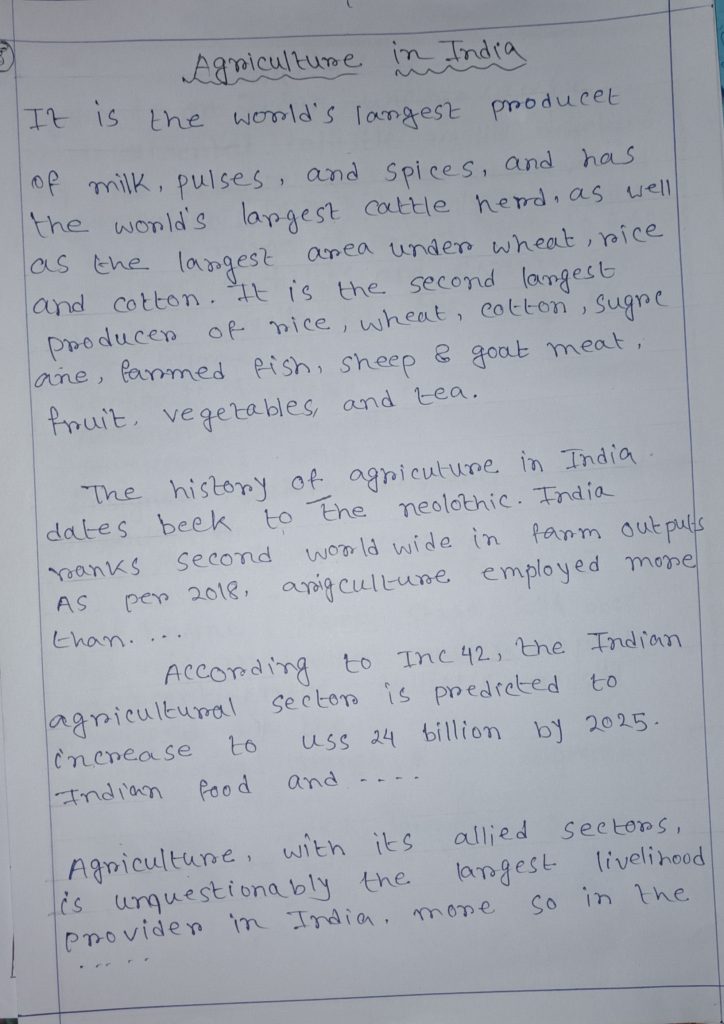 Agriculture in India
It is the world's largest producet
of milk, pulses, and spices, and has
the world's largest cattle herd, as well
as the largest area under wheat, rice
and cotton. It is the second largest
producer of rice, wheat, cotton, sugrc
ane, farmed fish, sheep & goat meat,
fruit, vegetables, and tea.
The history of agricuture in India
dates beek to the neolothic. India
ranks second world wide in farm outputs
As per 2018, arigculture employed more
than. ...
According to Inc 42, the Indian
agricultural sector is predicted to
increase to USS 24 billion by 2025.
Indian food and ----
Agriculture, with its allied sectors,
is unquestionably the largest livelihood
provider in India, more so in the
.....